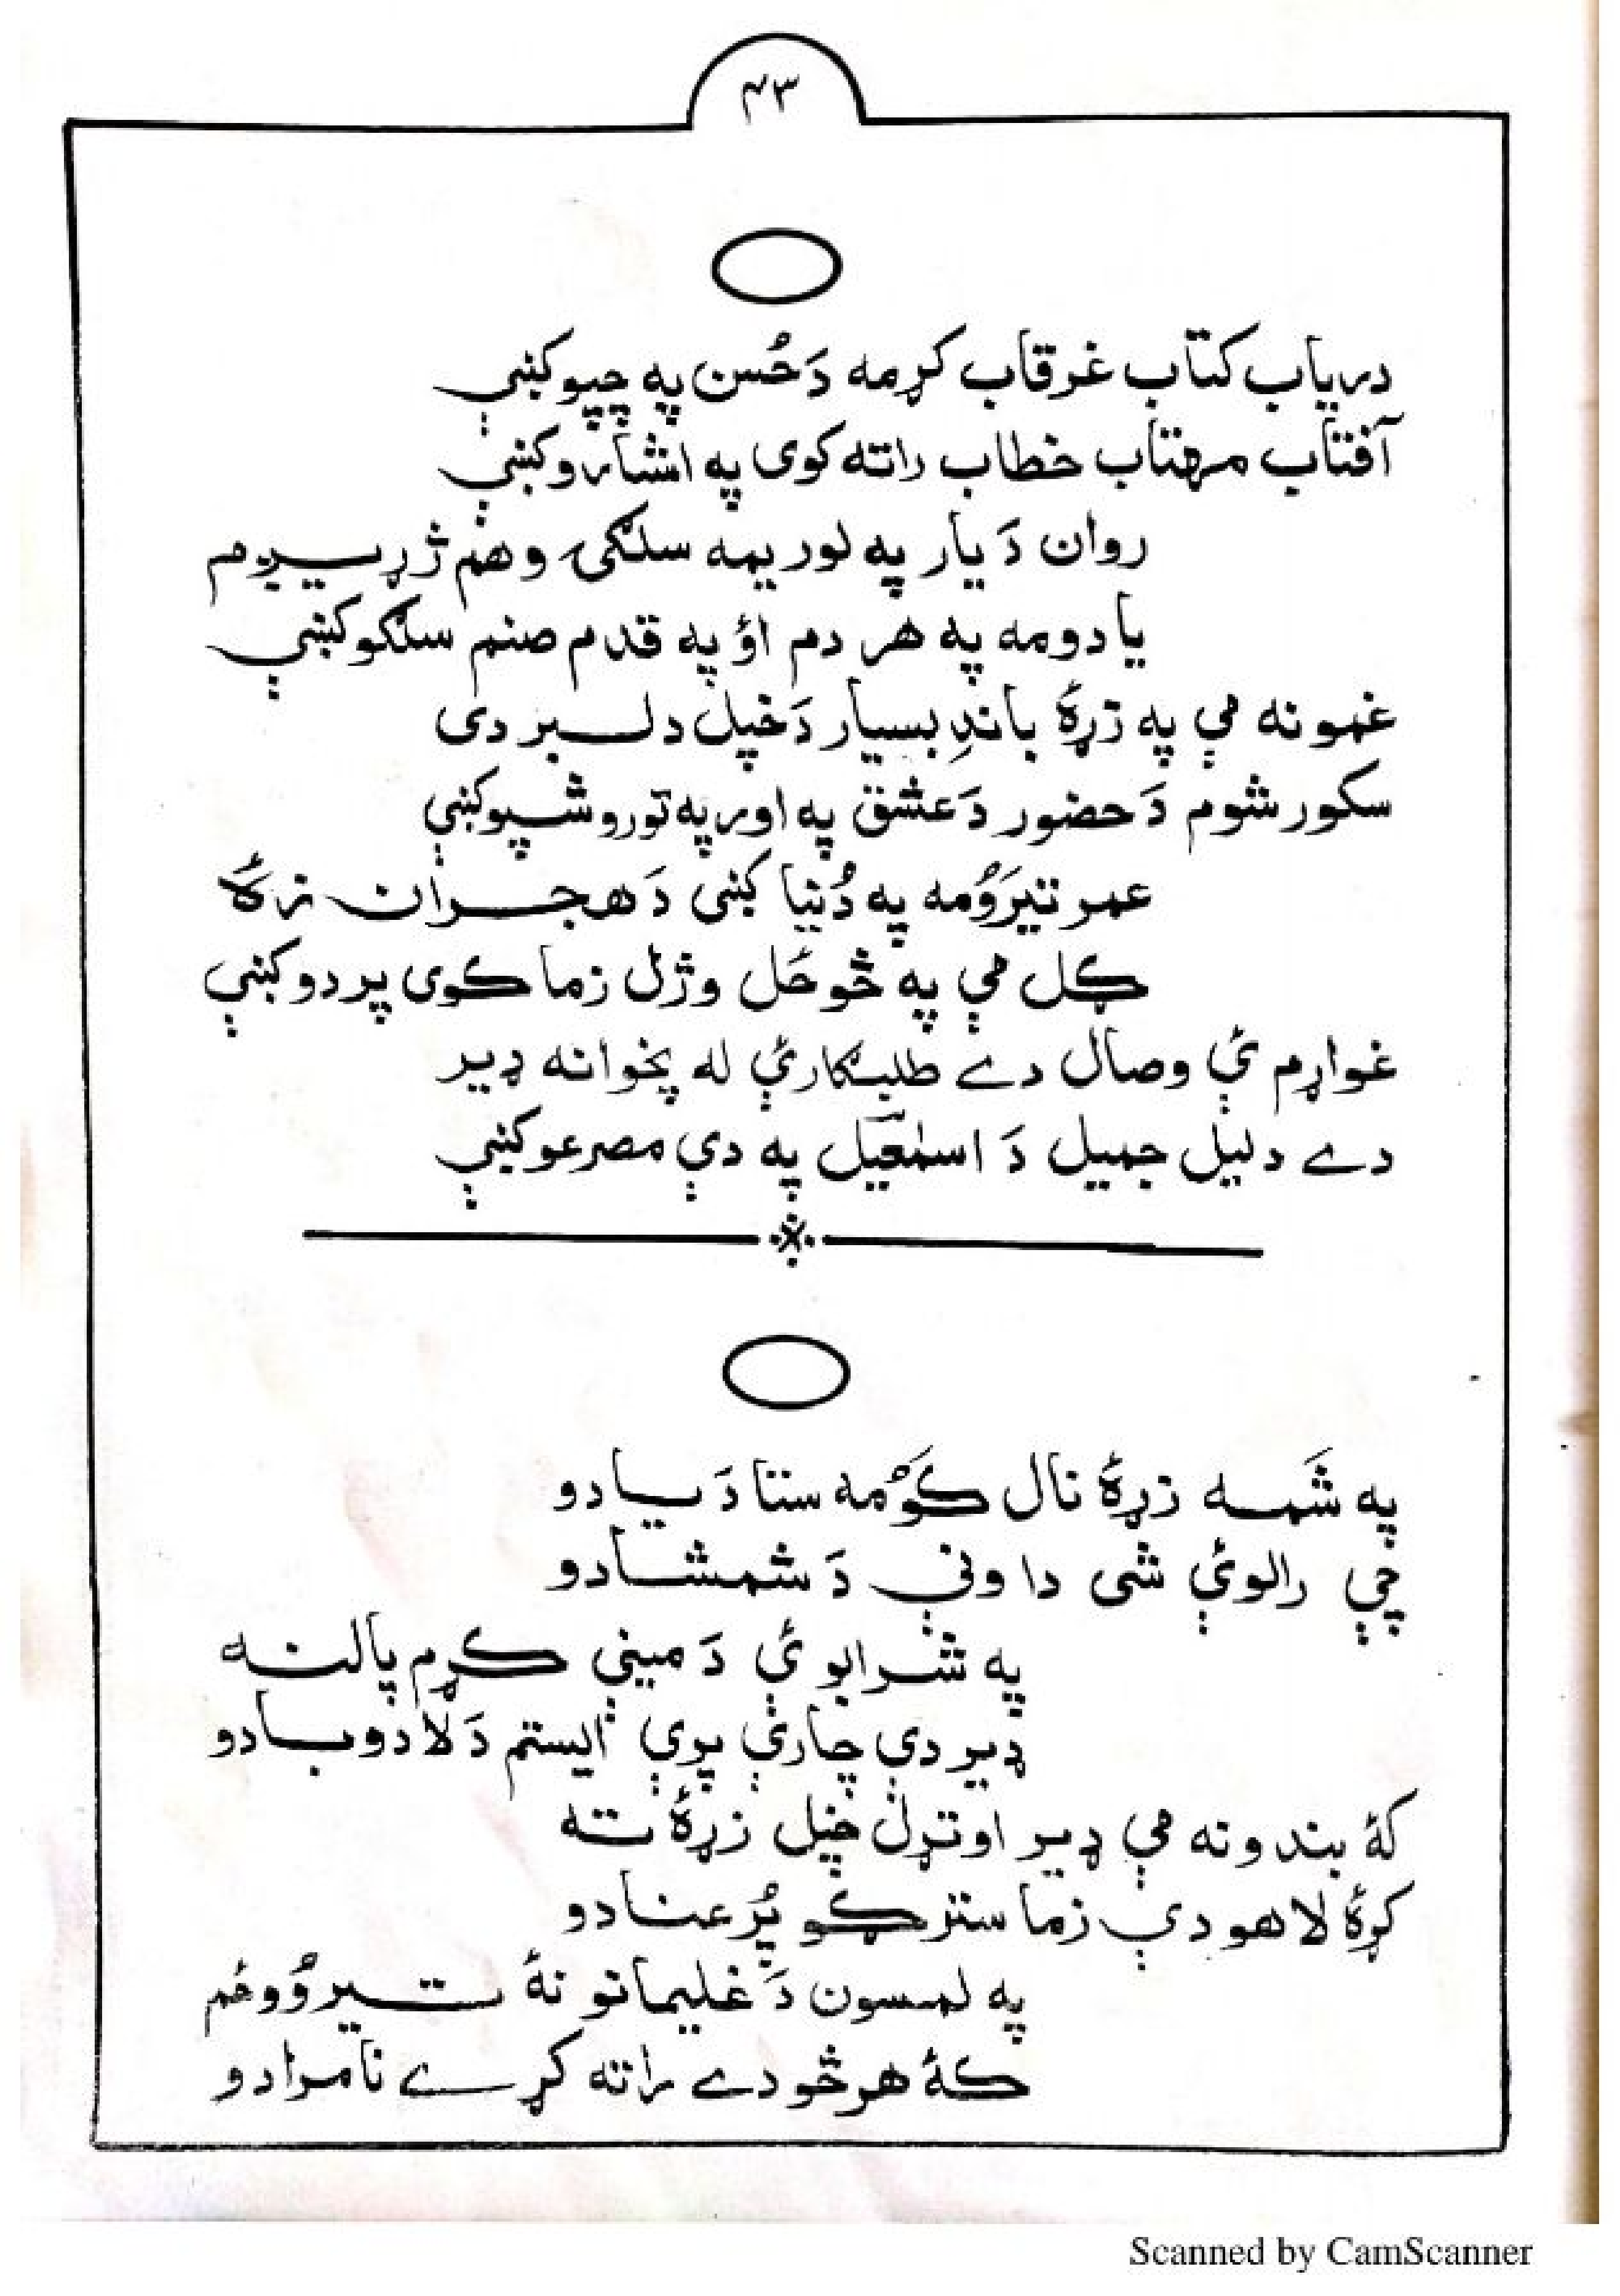 ۴۳
درياب کتاب غرقاب کړمه دَ حُسن په چپو کښې
آفتاب مهتاب خطاب راته کوى په اشارو کښې
روان دَ يار په لور يمه سلګۍ وهم ژړېږم
يا دومه په هر دم اؤ په قدم صنم سلګو کښې
غمونه مې په زړهٔ باندِ بسيار دَ خپل دلبر دى
سکور شوم دَ حضور دَ عشق په اور په تورو شپو کښې
عمر تيرَوُمه په دُنيا کښې دَ هجران زهٔ
ګل مې په څو ځل وژل زما کوى پردو کښې
غواړم ئې وصال دے طلبګارئې له پخوانه ډير
دے دليل جميل دَ اسمٰعيل په دې مصرعو کښې
په شَمه زړهٔ نال کوُمه ستا دَ يادو
چې رالوئې شى دا ونې دَ شمشادو
په شرابو ئې دَ مينې کړم پالنه
ډير دې چارې پرې ايستم دَ لادو بادو
کهٔ بندونه مې ډير اوتړل خپل زړهٔ ته
کړهٔ لاهو دې زما سترګو پُر عنادو
په لمسون دَ غليمانو نهٔ تيروُوځم
کهٔ هر څو دے راته کړے نامرادو
Scanned by CamScanner